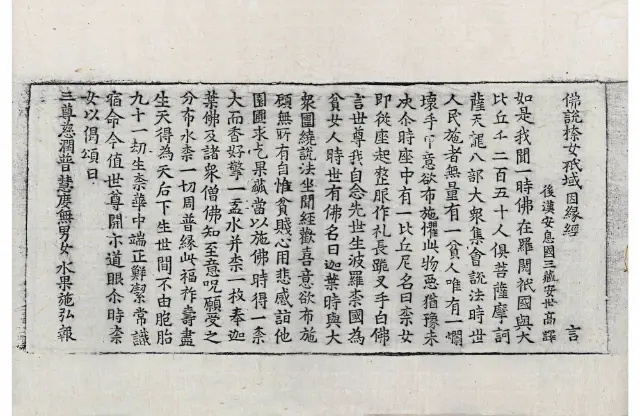 佛說㮈女祇域因緣經
後漢安息國三藏安世高譯 言
如是我聞一時佛在羅閱祇國與大
比丘千二百五十人俱菩薩摩訶
薩天龍八部大衆集會說法時世
人民施者無量有一貧人唯有一爛
壞手巾意欲布施懼此物惡猶豫未
决尒時座中有一比丘尼名曰柰女
即從座起整服作礼長跪叉手白佛
言世尊我自念先世生波羅柰國為
貧女人時世有佛名曰迦葉時與大
衆圍繞說法坐聞經歡喜意欲布施
顧無所有自惟貧賤心用悲感詣他
園圃求乞果蓏當以施佛時得一柰
大而香好擎一盂水并柰一枚奉迦
葉佛及諸衆僧佛知至意呪願受之
分布水柰一切周普緣此福祚壽盡
生天得為天后下生世間不由胞胎
九十一劫生柰華中端正鮮潔常識
宿命今值世尊開示道眼尒時柰
女以偈頌曰
三尊慈潤普 慧度無男女 水果施弘報